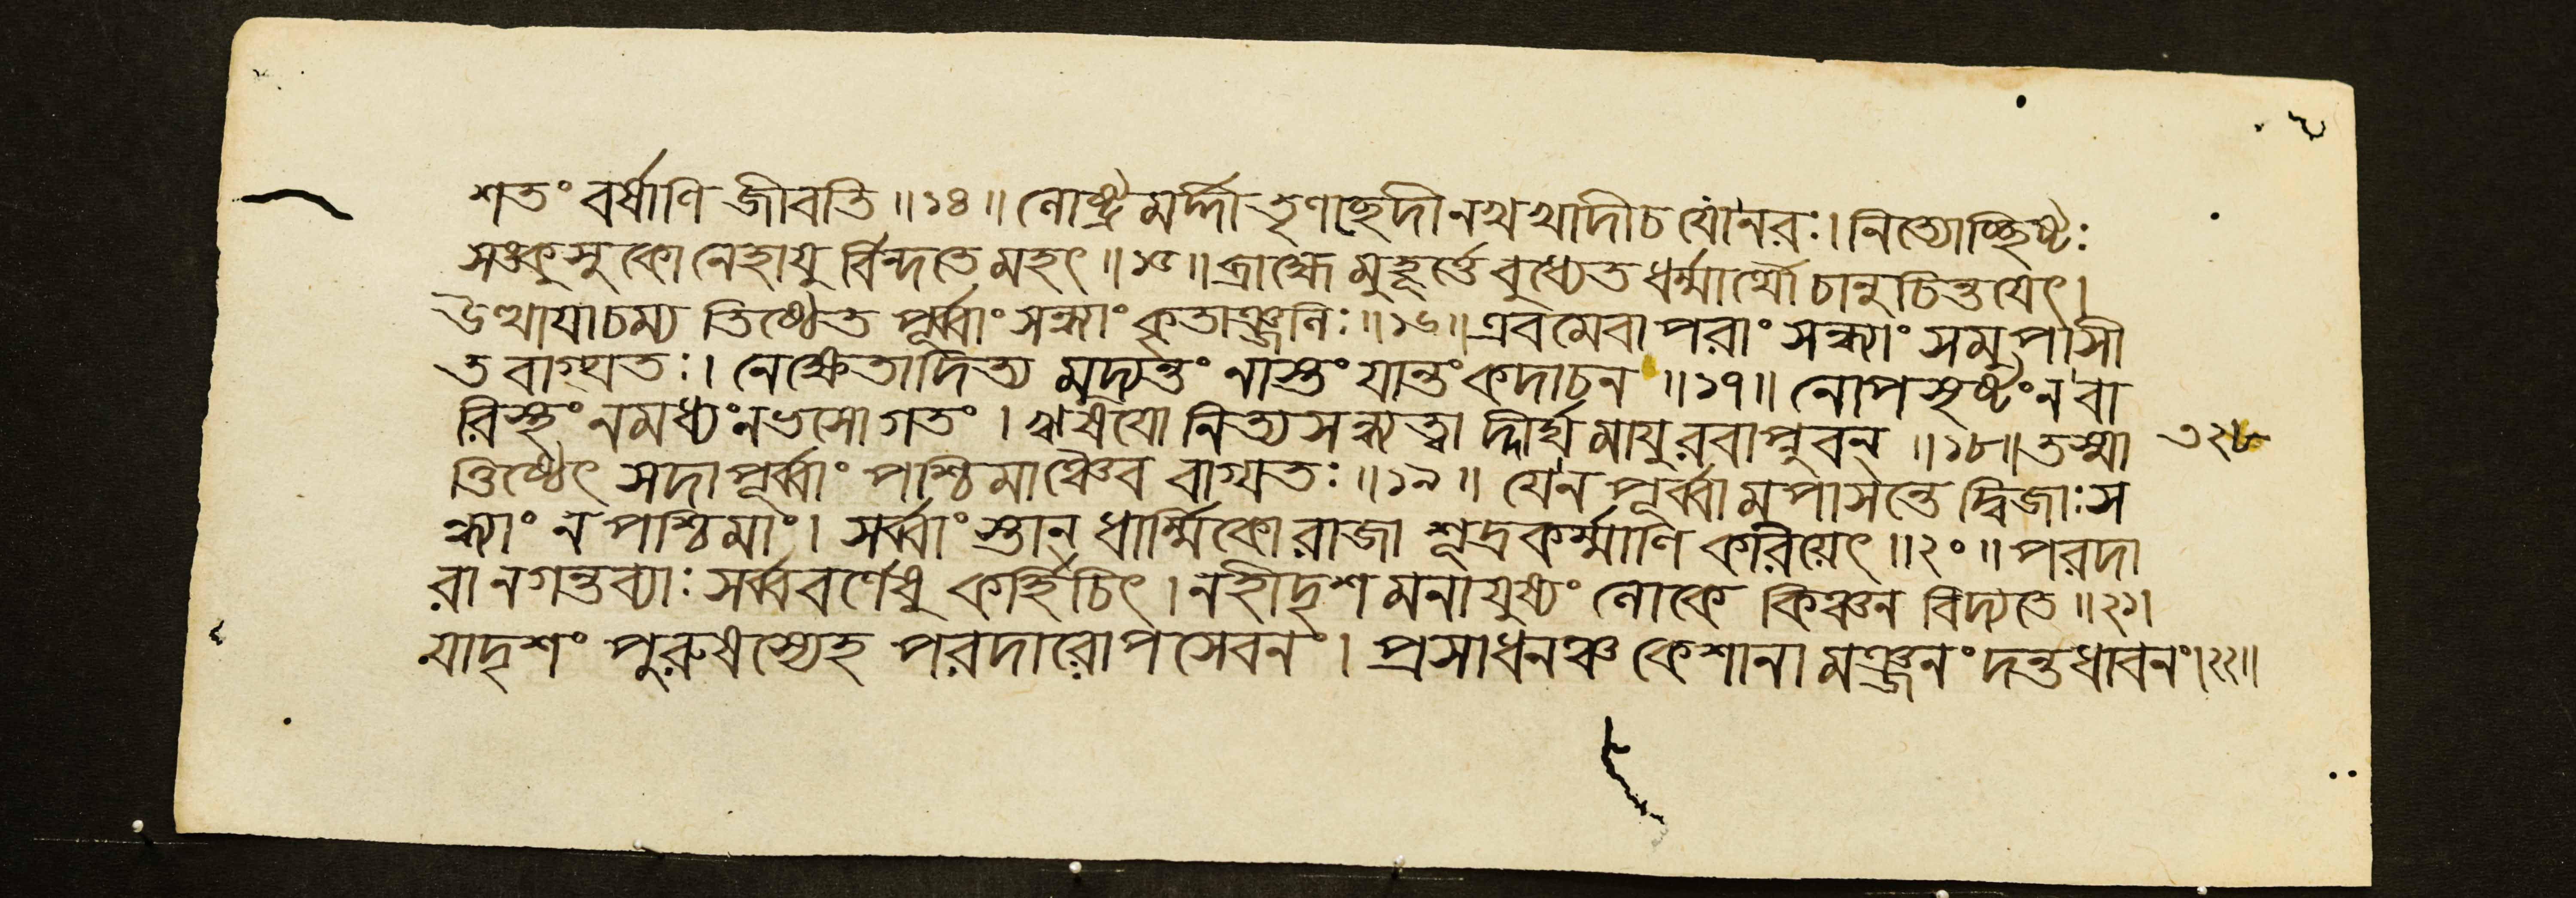 শতং বর্ষাণি জীবতি ॥১৪॥ লোষ্ট্রমর্দ্দী তৃণচ্ছেদী নখখাদী চ যো নরঃ। নিত্যোচ্ছিষ্টঃ
সঙ্কুসুকো নেহায়ু র্বিন্দতে মহৎ ॥১৫॥ ব্রাহ্মে মুহূর্ত্তে বুধ্যেত ধর্ম্মার্থৌ চানুচিন্তয়েৎ।
উত্থায়াচম্য তিষ্ঠেত পূর্ব্বাং সন্ধ্যাং কৃতাঞ্জলিঃ ॥১৬॥ এবমেবাপরাং সন্ধ্যাং সমুপাসী
ত বাগ্যতঃ। নেক্ষেতাদিত্য মুদ্যন্তং নাস্তং যান্তং কদাচন ॥১৭॥ নোপসৃষ্টং ন বা
রিস্থং ন মধ্যং নভসো গতং। ঋষয়ো নিত্যসন্ধ্যত্বা দ্দীর্ঘমায়ুরবাপ্নুবন্ ॥১৮॥ তস্মা
ত্তিষ্ঠেৎ সদা পূর্ব্বাং পশ্চিমাঞ্চৈব বাগ্যতঃ ॥১৯॥ যে ন পূর্ব্বামুপাসন্তে দ্বিজাঃ স
ন্ধ্যাং ন পশ্চিমাং। সর্ব্বাংস্তান্ ধার্ম্মিকো রাজা শূদ্রকর্ম্মাণি করিয়েৎ ॥২০॥ পরদা
রা ন গন্তব্যাঃ সর্ব্ববর্ণেষু কর্হিচিৎ। নহীদৃশমনায়ুষ্যং লোকে কিঞ্চন বিদ্যতে ॥২১।
যাদৃশং পুরুষস্যেহ পরদারোপসেবনং। প্রসাধনঞ্চ কেশানামঞ্জনং দন্তধাবনং।২২॥
৩২৮